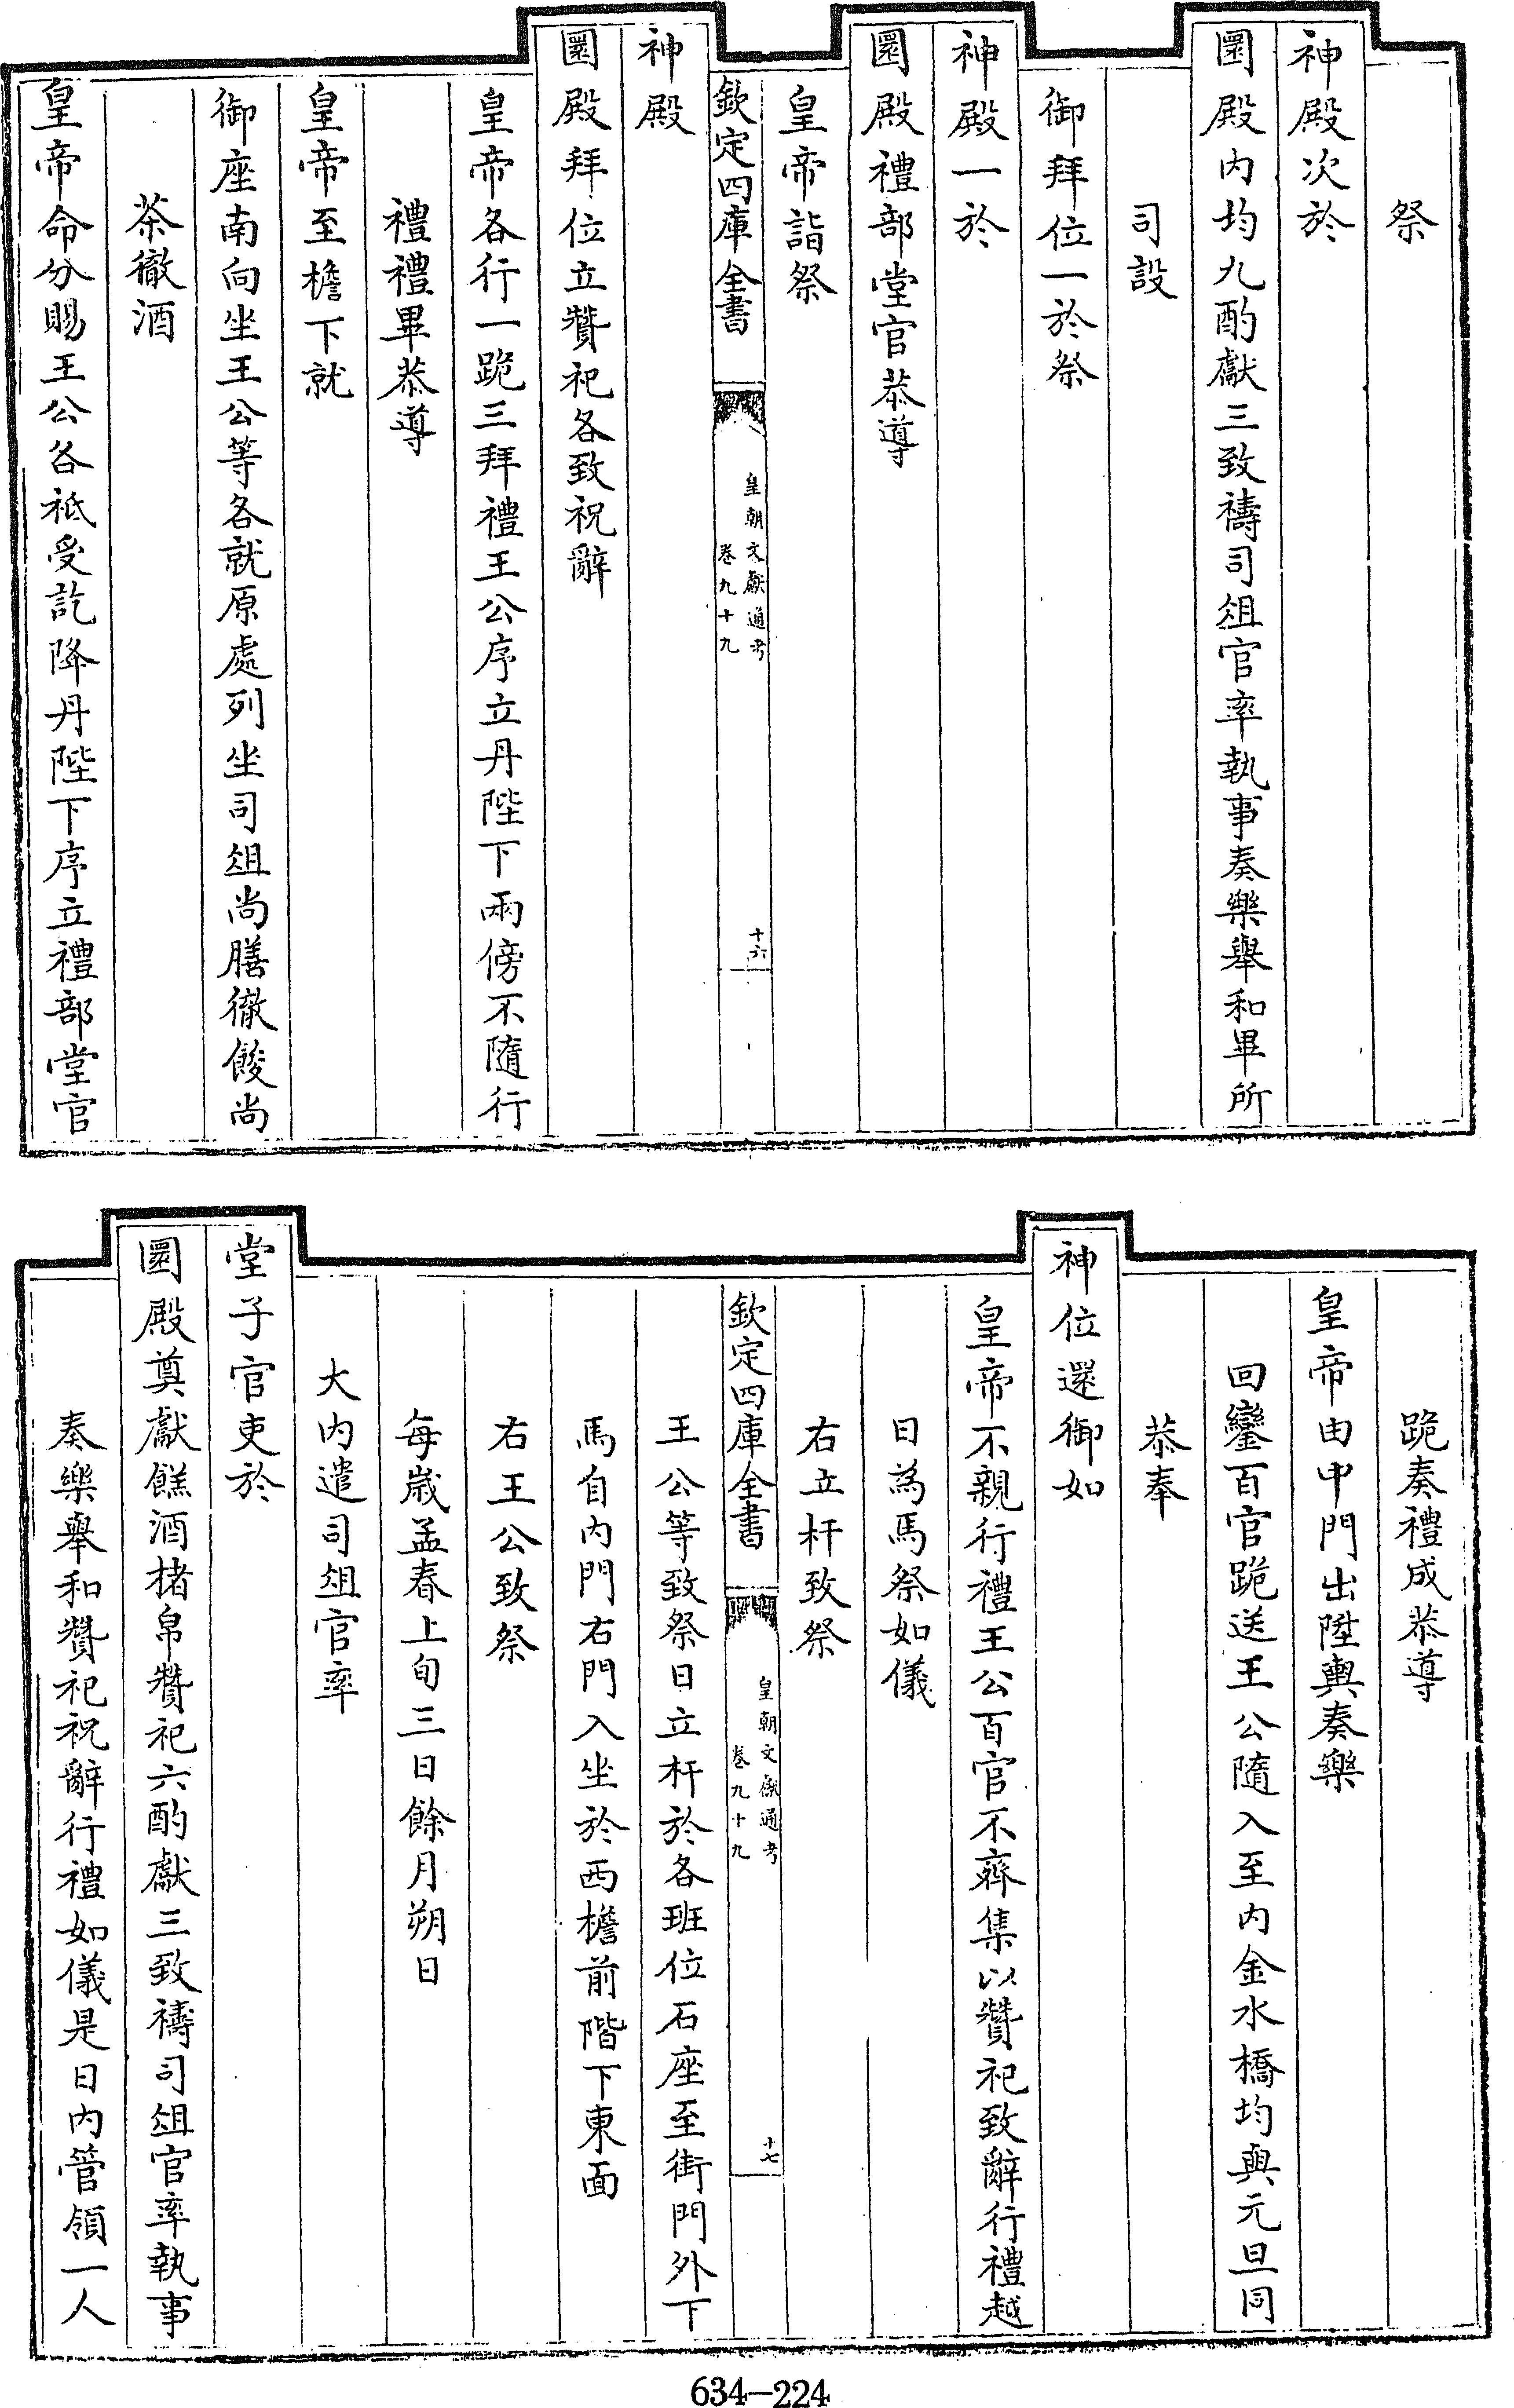 祭
神殿次於
圜殿内均九酌獻三致禱司俎官率執事奏樂舉和畢所
司設
御拜位一於祭
神殿一於
圜殿禮部堂官恭導
皇帝詣祭
欽定四庫全書
皇朝文獻通考
卷九十九
十六
神殿
圜殿拜位立贊祀各致祝辭
皇帝各行一跪三拜禮王公序立丹陛下兩傍不隨行
禮禮畢恭導
皇帝至檐下就
御座南向坐王公等各就原處列坐司俎尚膳徹餕尚
茶徹酒
皇帝命分賜王公各祗受訖降丹陛下序立禮部堂官
跪奏禮成恭導
皇帝由中門出陞輿奏樂
回鑾百官跪送王公隨入至内金水橋均與元旦同
恭奉
神位還御如
皇帝不親行禮王公百官不齊集以贊祀致辭行禮越
日為馬祭如儀
右立杆致祭
欽定四庫全書
皇朝文獻通考
卷九十九
十七
王公等致祭日立杆於各班位石座至街門外下
馬自内門右門入坐於西檐前階下東面
右王公致祭
每歲孟春上旬三日餘月朔日
大内遣司俎官率
堂子官吏於
圜殿奠獻餻酒楮帛贊祀六酌獻三致禱司俎官率執事
奏樂舉和贊祀祝辭行禮如儀是日内管領一人
634-224